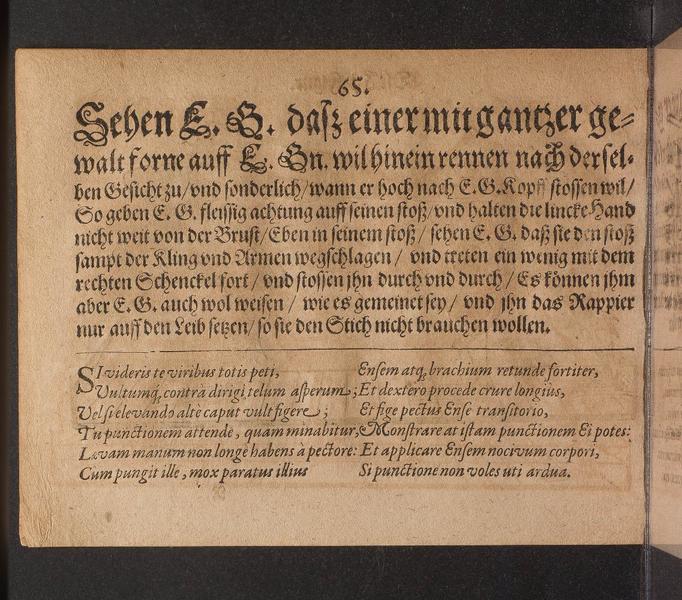 65.
Sehen E. G. dasz einer mit gantzer ge-
walt forne auff E. Gn. wil hinein rennen nach dersel-
ben Gesicht zu/vnd sonderlich/wann er hoch nach E.G.Kopff stossen wil/
So geben E. G. fleissig achtung auff seinen stoß/vnd halten die lincke Hand
nicht weit von der Brust/Eben in seinem stoß/ sehen E. G. daß sie den stoß
sampt der Kling vnd Armen wegschlagen / vnd treten ein wenig mit dem
rechten Schenckel fort / vnd stossen jhn durch vnd durch / Es können jhm
aber E. G. auch wol weisen / wie es gemeinet sey / vnd jhn das Rappier
nur auff den Leib setzen/so sie den Stich nicht brauchen wollen.
SI videris te viribus totis peti,
Vultumq; contrà dirigi telum asperum;
Vel si elevando altè caput vult figere;
Tu punctionem attende, quam minabitur;
Lævam manum non longè habens à pectore:
Cum pungit ille, mox paratus illius
Ensem atq; brachium retunde fortiter,
Et dextero procede crure longiùs,
Et fige pectus Ense transitorio,
Monstrare at istam punctionem Ei potes:
Et applicare Ensem nocivum corpori,
Si punctione non voles uti ardua.